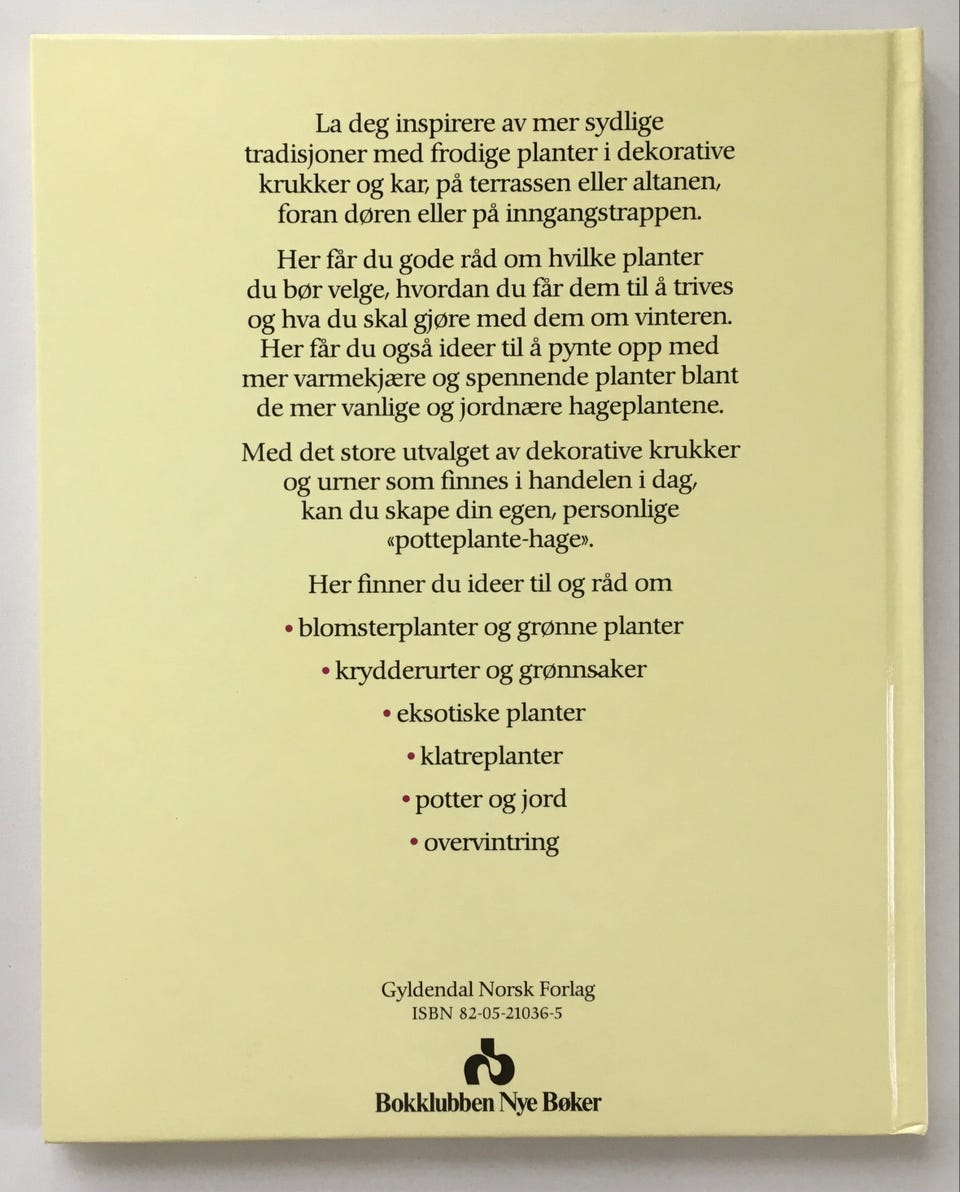 La deg inspirere av mer sydlige
tradisjoner med frodige planter i dekorative
krukker og kar, på terrassen eller altanen,
foran døren eller på inngangstrappen.
Her får du gode råd om hvilke planter
du bør velge, hvordan du får dem til å trives
og hva du skal gjøre med dem om vinteren.
Her får du også ideer til å pynte opp med
mer varmekjære og spennende planter blant
de mer vanlige og jordnære hageplantene.
Med det store utvalget av dekorative krukker
og urner som finnes i handelen i dag,
kan du skape din egen, personlige
«potteplante-hage».
Her finner du ideer til og råd om
• blomsterplanter og grønne planter
• krydderurter og grønnsaker
• eksotiske planter
• klatreplanter
• potter og jord
• overvintring
Gyldendal Norsk Forlag
ISBN 82-05-21036-5
Bokklubben Nye Bøker